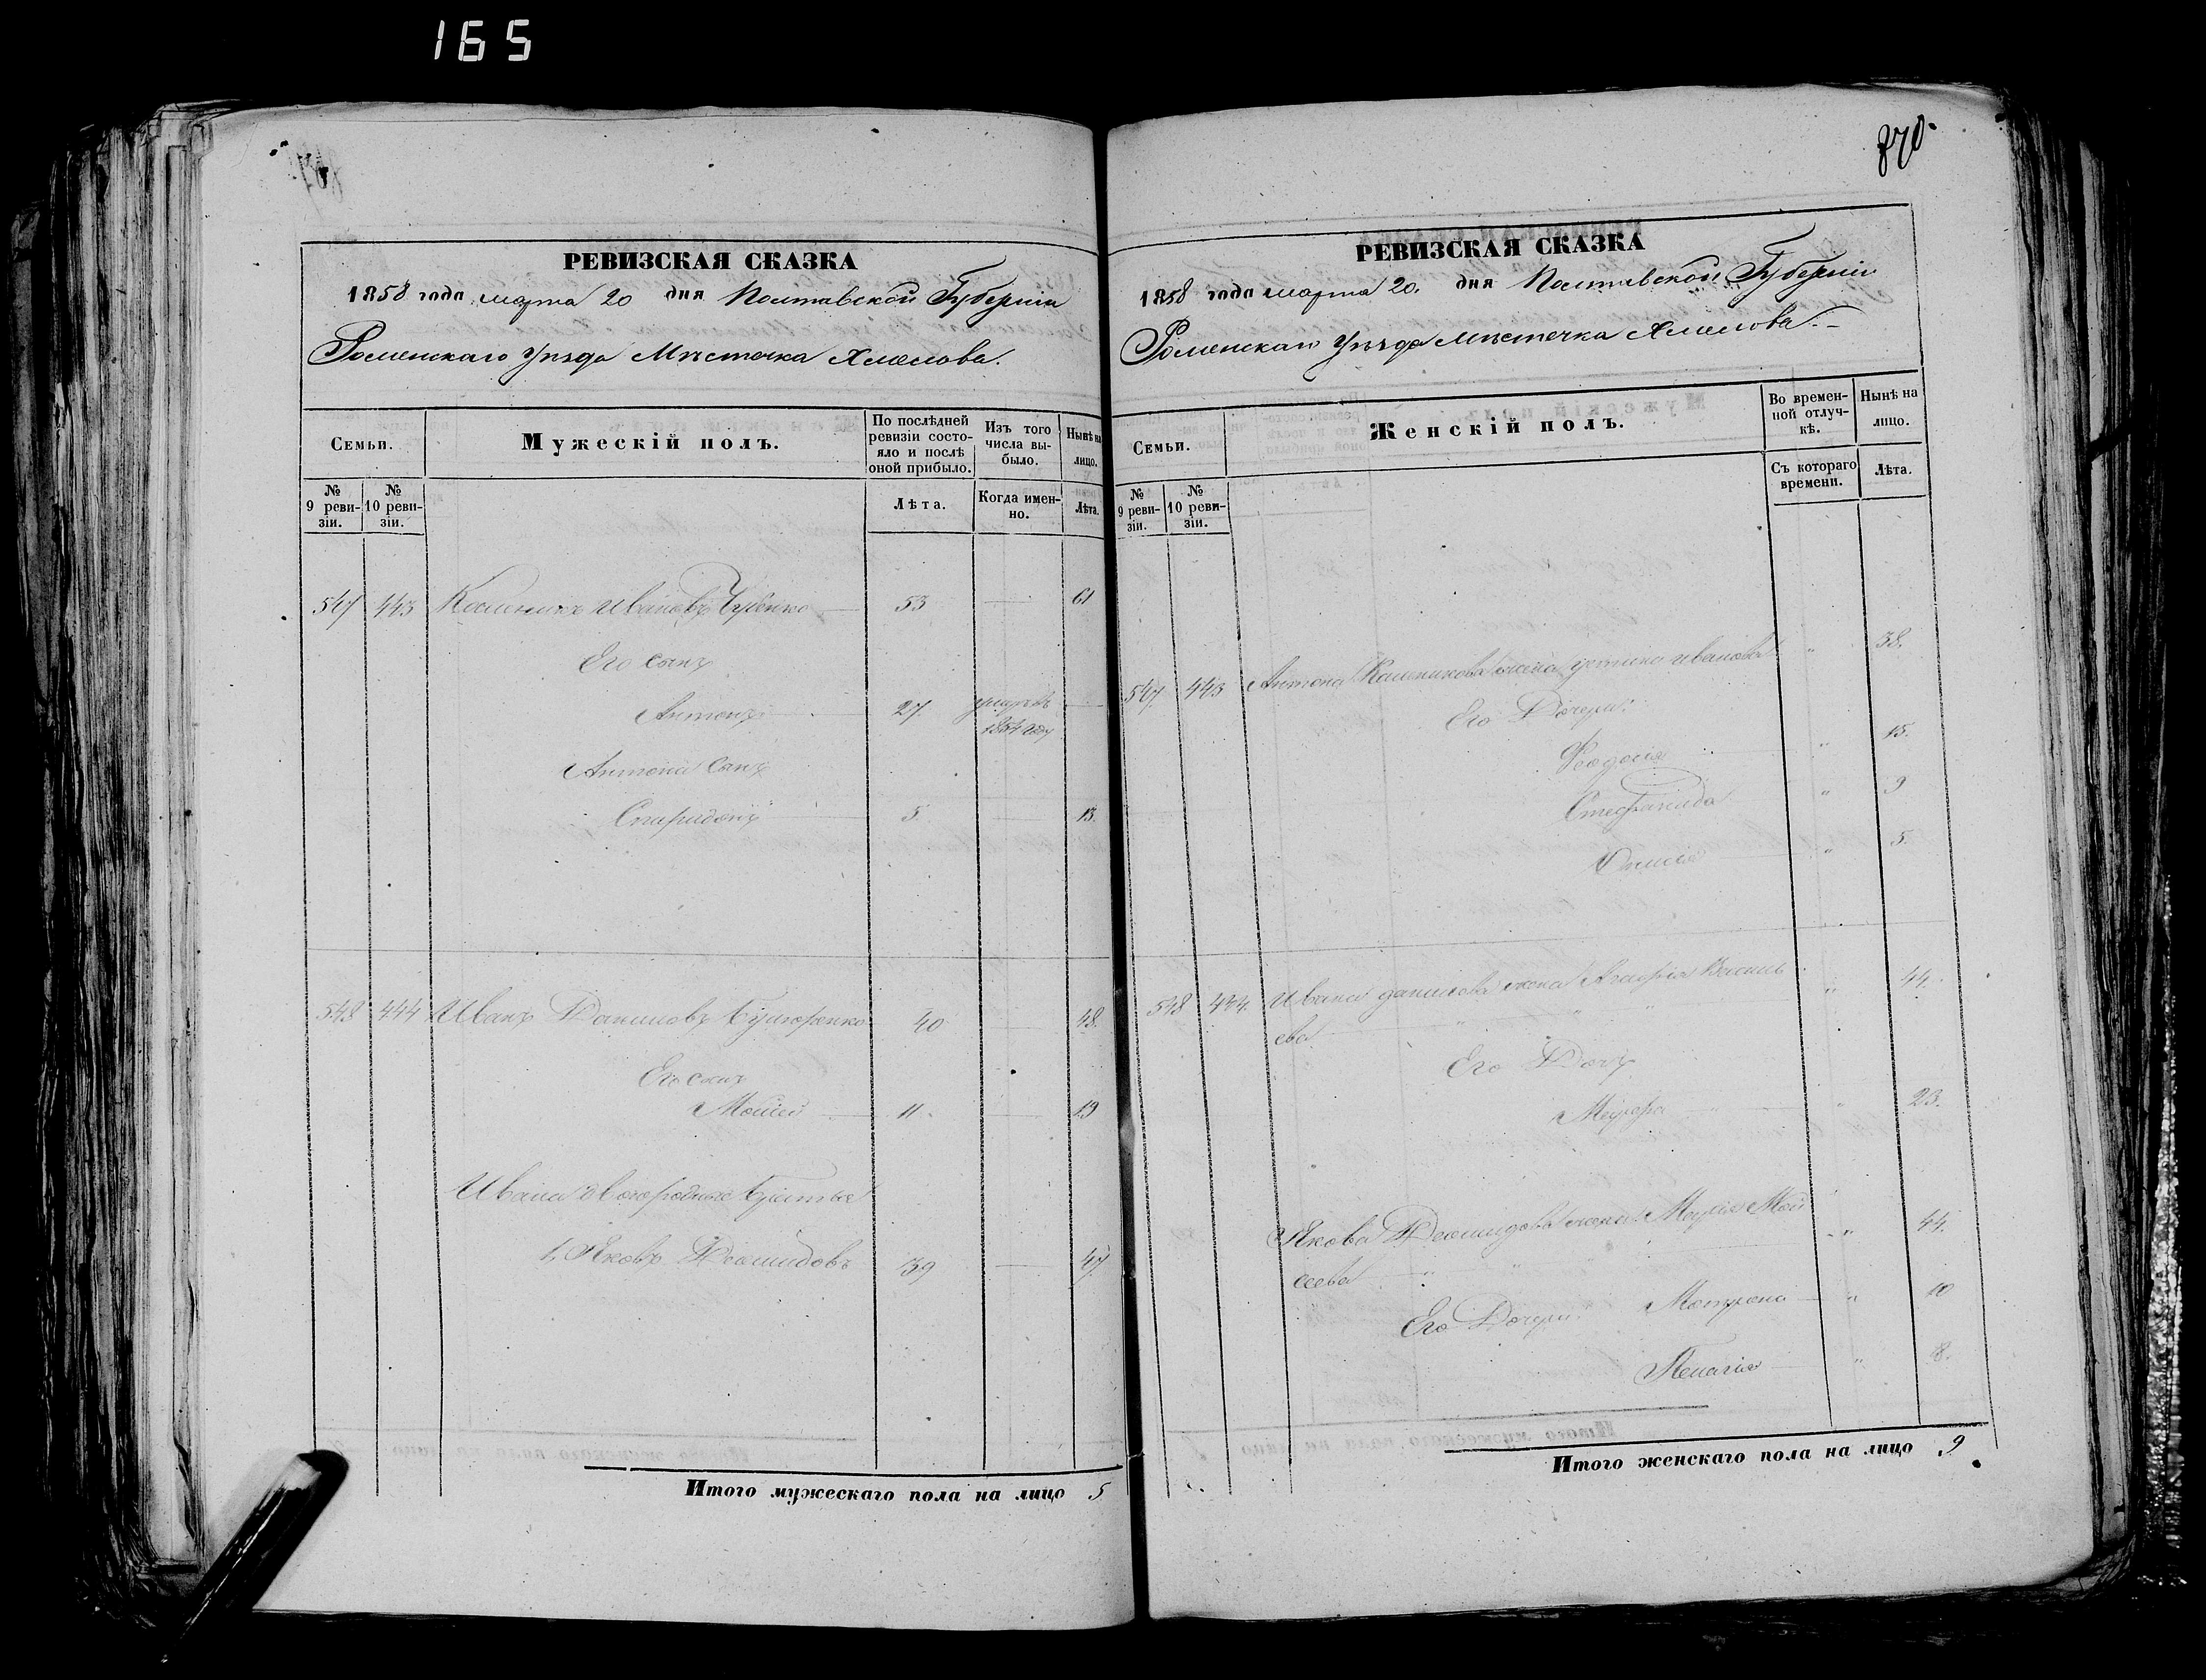 165
870.
РЕВИЗСКАЯ СКАЗКА
1858 года марта 20 дня Полтавской Губерніи
Роменскаго Уѣзда Мѣстечка Хмелова.
Семьи.
Мужескій полъ.
По послѣдней ревизіи состояло и послѣ оной прибыло.
Изъ того числа выбыло.
Нынѣ на лицо.
№ 9 ревизіи.
№ 10 ревизіи.
Лѣта.
Когда именно.
Лѣта.
547 443 Калиникъ Ивановъ 53 — 61
Его сынъ
Антонъ 27. умеръ въ 1854 году —
Антона сынъ
Спиридонъ 5. — 13.
548 444 Иванъ Даниловъ 40 — 48.
Его сынъ
Мойсей 11. — 19
Ивана двоюродные братья
1, Яковъ Деомидовъ 39 — 47.
Итого мужескаго пола на лицо 5
РЕВИЗСКАЯ СКАЗКА
1858 года марта 20. дня Полтавской Губерніи
Роменскаго Уѣзда Мѣстечка Хмелова.–
Семьи.
Женскій полъ.
Во временной отлучкѣ.
Нынѣ на лицо.
№ 9 ревизіи.
№ 10 ревизіи.
Съ котораго времени.
Лѣта.
547. 443 Антона Калиникова жена Устина Иванова " 38.
Его Дочери:
Феодосія " 15.
Стефанида " 9
" 5.
548 444. Ивана Данилова жена Агафія Василь " 44.
ева
Его Дочь
Марфа " 23.
Якова Деомидова жена Марія Мой " 44.
сеева
Его Дочери: Матрона " 10
Пелагія " 8.
Итого женскаго пола на лицо 9